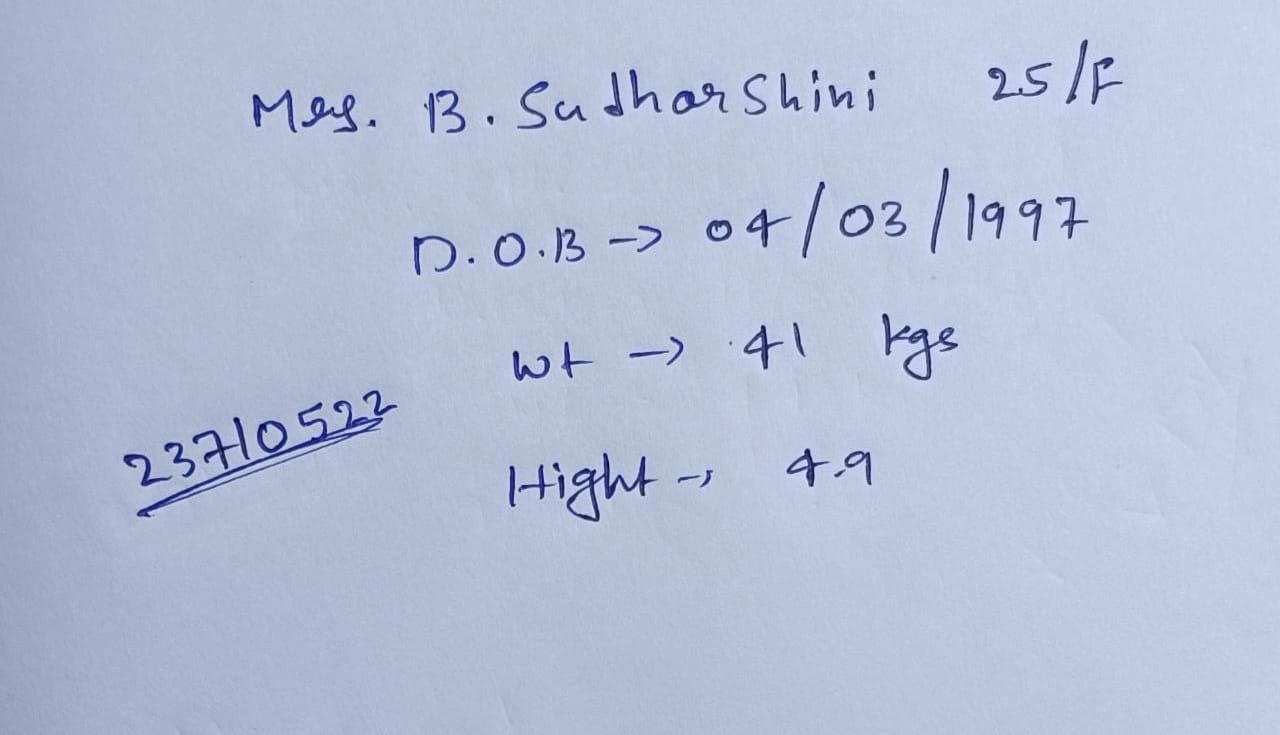 Mrs. B. Sudharshini 25/F
D.O.B -> 04/03/1997
Wt -> 41 kgs
23710522
Hight -> 4.9